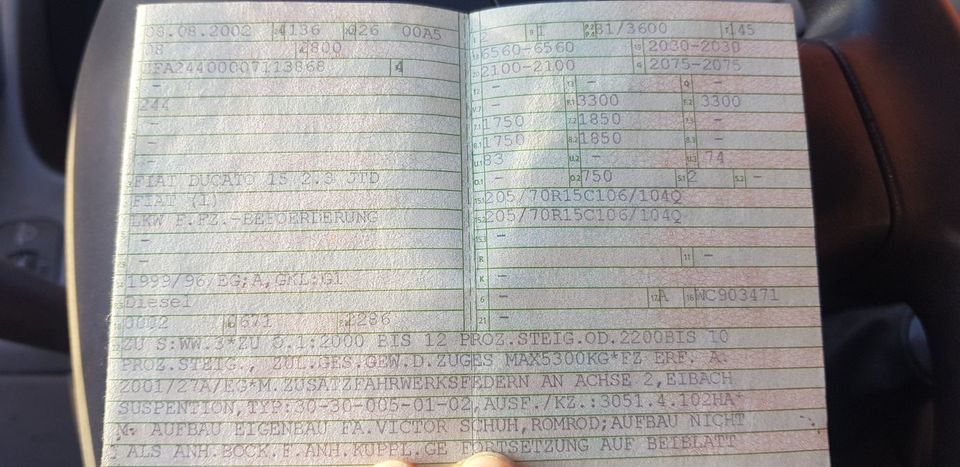 08.08.2002 4136 026 00A5
08 4800
ZFA24400007113868 4
-
244
-
-
-
FIAT DUCATO 15 2.3 JTD
FIAT (I)
LKW F.FZ.-BEFÖRDERUNG
-
-
1999/96/EG;A,GKL:G1
Diesel
0002 0671 2286
P.2 P.4 81/3600 T 145
18 6560-6560 19 2030-2030
20 2100-2100 G 2075-2075
12 - 13 - Q -
V.7 - F.1 3300 F.2 3300
7.1 1750 7.2 1850 7.3 -
8.1 1750 8.2 1850 8.3 -
U.1 83 U.2 - U.3 74
O.1 - O.2 750 S.1 2 S.2 -
15.1 205/70R15C106/104Q
15.2 205/70R15C106/104Q
15.3 -
R 11 -
K -
6 - 17 A 16 WC903471
21 -
ZU S:WW.3*ZU O.1:2000 BIS 12 PROZ.STEIG.OD.2200BIS 10
PROZ.STEIG., ZUL.GES.GEW.D.ZUGES MAX5300KG*FZ ERF. A
2001/27A/EG*M.ZUSATZFAHRWERKSFEDERN AN ACHSE 2,EIBACH
SUSPENTION,TYP:30-30-005-01-02,AUSF./KZ.:3051.4.102HA*
M. AUFBAU EIGENBAU FA.VICTOR SCHUH,ROMROD;AUFBAU NICHT
ALS ANH.BOCK.F.ANH.KUPPL.GE FORTSETZUNG AUF BEIBLATT